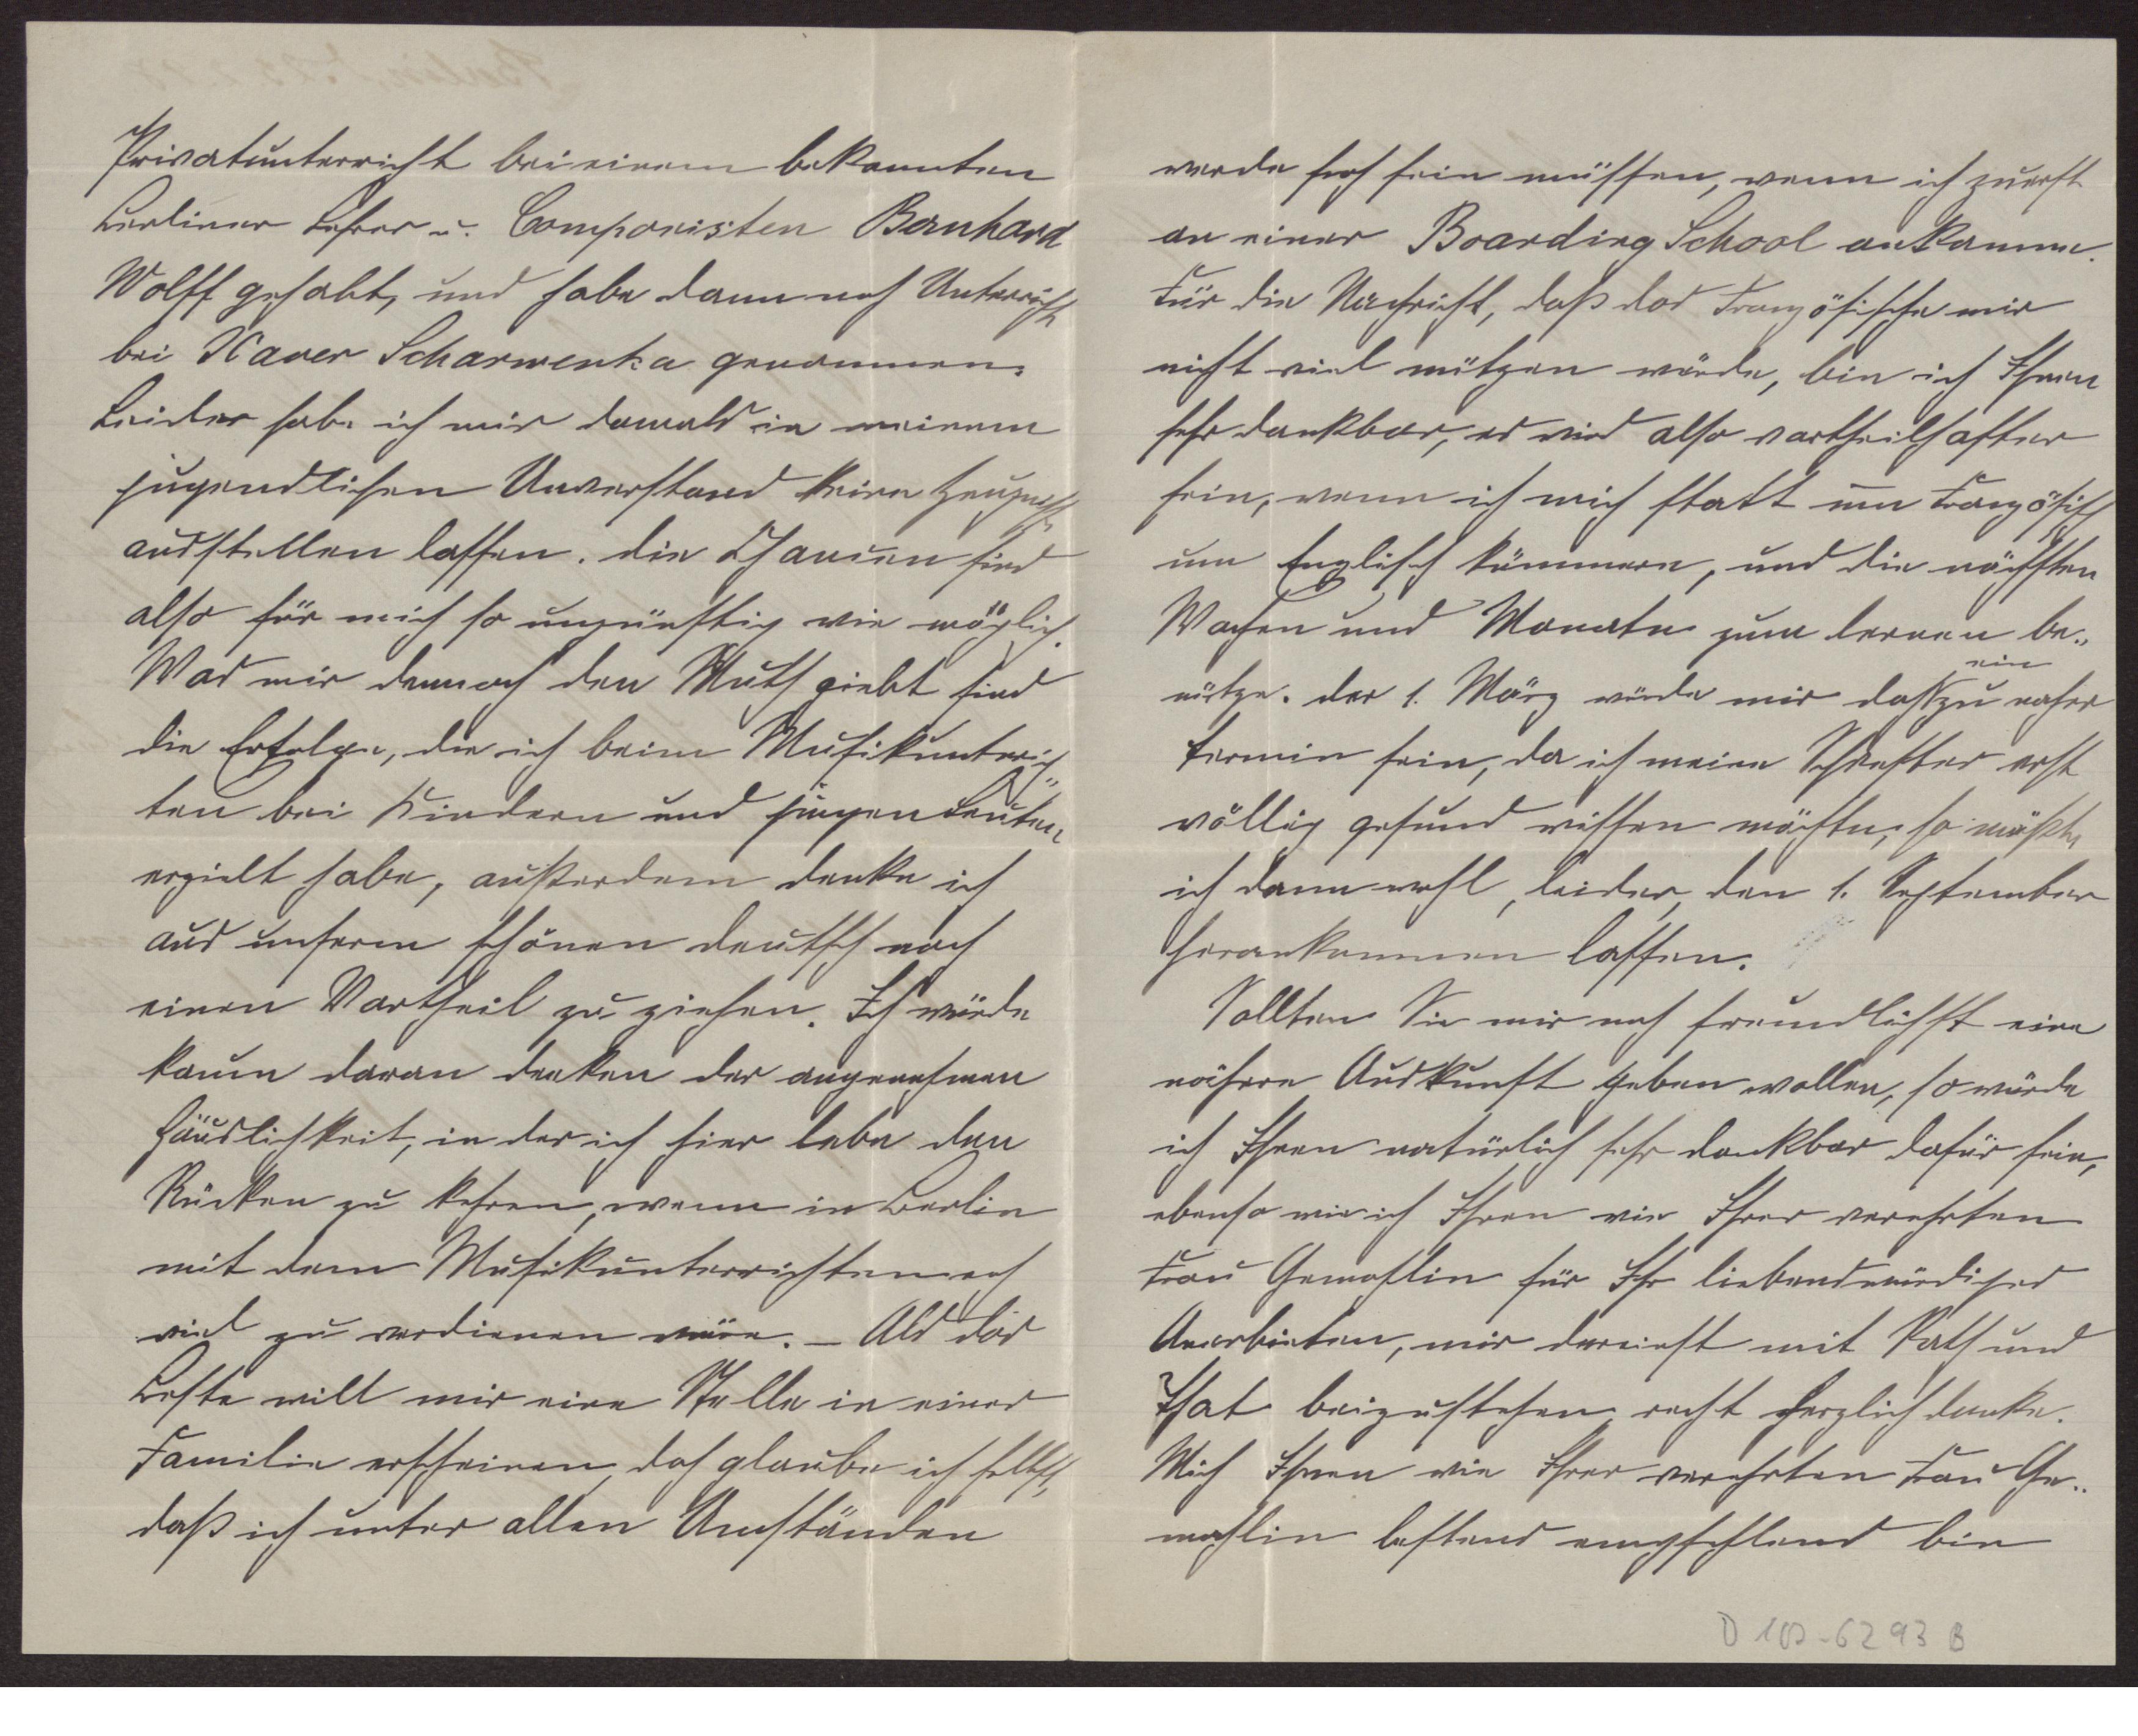 Privatunterricht bei einem bekannten
Berliner Lehrer u. Componisten Bernhard
Wolff gehabt, und habe dann noch Unterricht
bei Xaver Scharwenka genommen.
Leider habe ich mir damals in meinem
jugendlichen Unverstand keine Zeugnisse
ausstellen lassen. Die Chancen sind
also für mich so ungünstig wie möglich.
Was mir dennoch den Muth giebt sind
die Erfolge, die ich beim Musikunterrich-
ten bei Kindern und jungen Leuten
erzielt habe, außerdem denke ich
aus unserm schönen deutsch noch
einen Vortheil zu ziehen. Ich würde
kaum daran denken der angenehmen
Häuslichkeit, in der ich hier lebe den
Rücken zu kehren, wenn in Berlin
mit dem Musikunterrichten noch
viel zu verdienen wäre. – Als das
Beste will mir eine Stelle in einer
Familie erscheinen, doch glaube ich selbst,
daß ich unter allen Umständen
werde froh sein müssen, wenn ich zuerst
an einer Boarding School ankomme.
Für die Nachricht, daß das Französische mir
nicht viel nützen würde, bin ich Ihnen
sehr dankbar, es wird also vortheilhafter
sein, wenn ich mich statt um Französisch
um Englisch kümmere, und die nächsten
Wochen und Monate zum lernen be-
nütze. Der 1. März würde mir doch ein zu naher
Termin sein, da ich meine Schwester erst
völlig gesund wissen möchte, so müßte
ich dann wohl, leider, den 1. September
herankommen lassen.
Sollten Sie mir noch freundlichst eine
nähere Auskunft geben wollen, so würde
ich Ihnen natürlich sehr dankbar dafür sein,
ebenso wie ich Ihnen wie Ihrer verehrten
Frau Gemahlin für Ihr liebenswürdiges
Anerbieten, mir dereinst mit Rath und
That beizustehen, recht herzlich danke.
Mich Ihnen wie Ihrer verehrten Frau Ge-
mahlin bestens empfehlend bin
D 100-6293 B